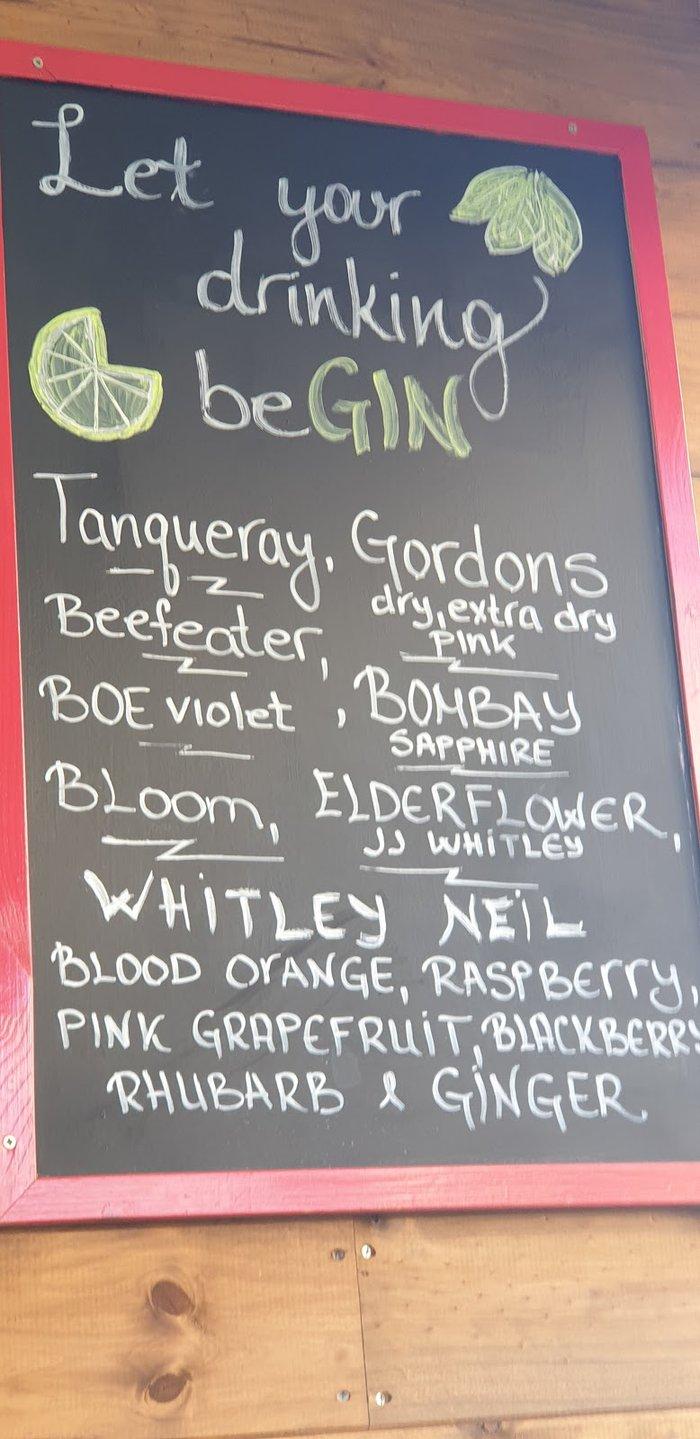 Let your
drinking
beGIN
Tanqueray, Gordons
dry, extra dry
Pink
Beefeater,
BOE violet , BOMBAY
SAPPHIRE
BLoom, ELDERFLOWER,
JJ WHiTLEY
WHiTLEY NEiL
BLOOD OrANGE, RASPBErry,
PINK GRAPEFRUiT, BLACKBERRY
RHUBARB & GiNGER